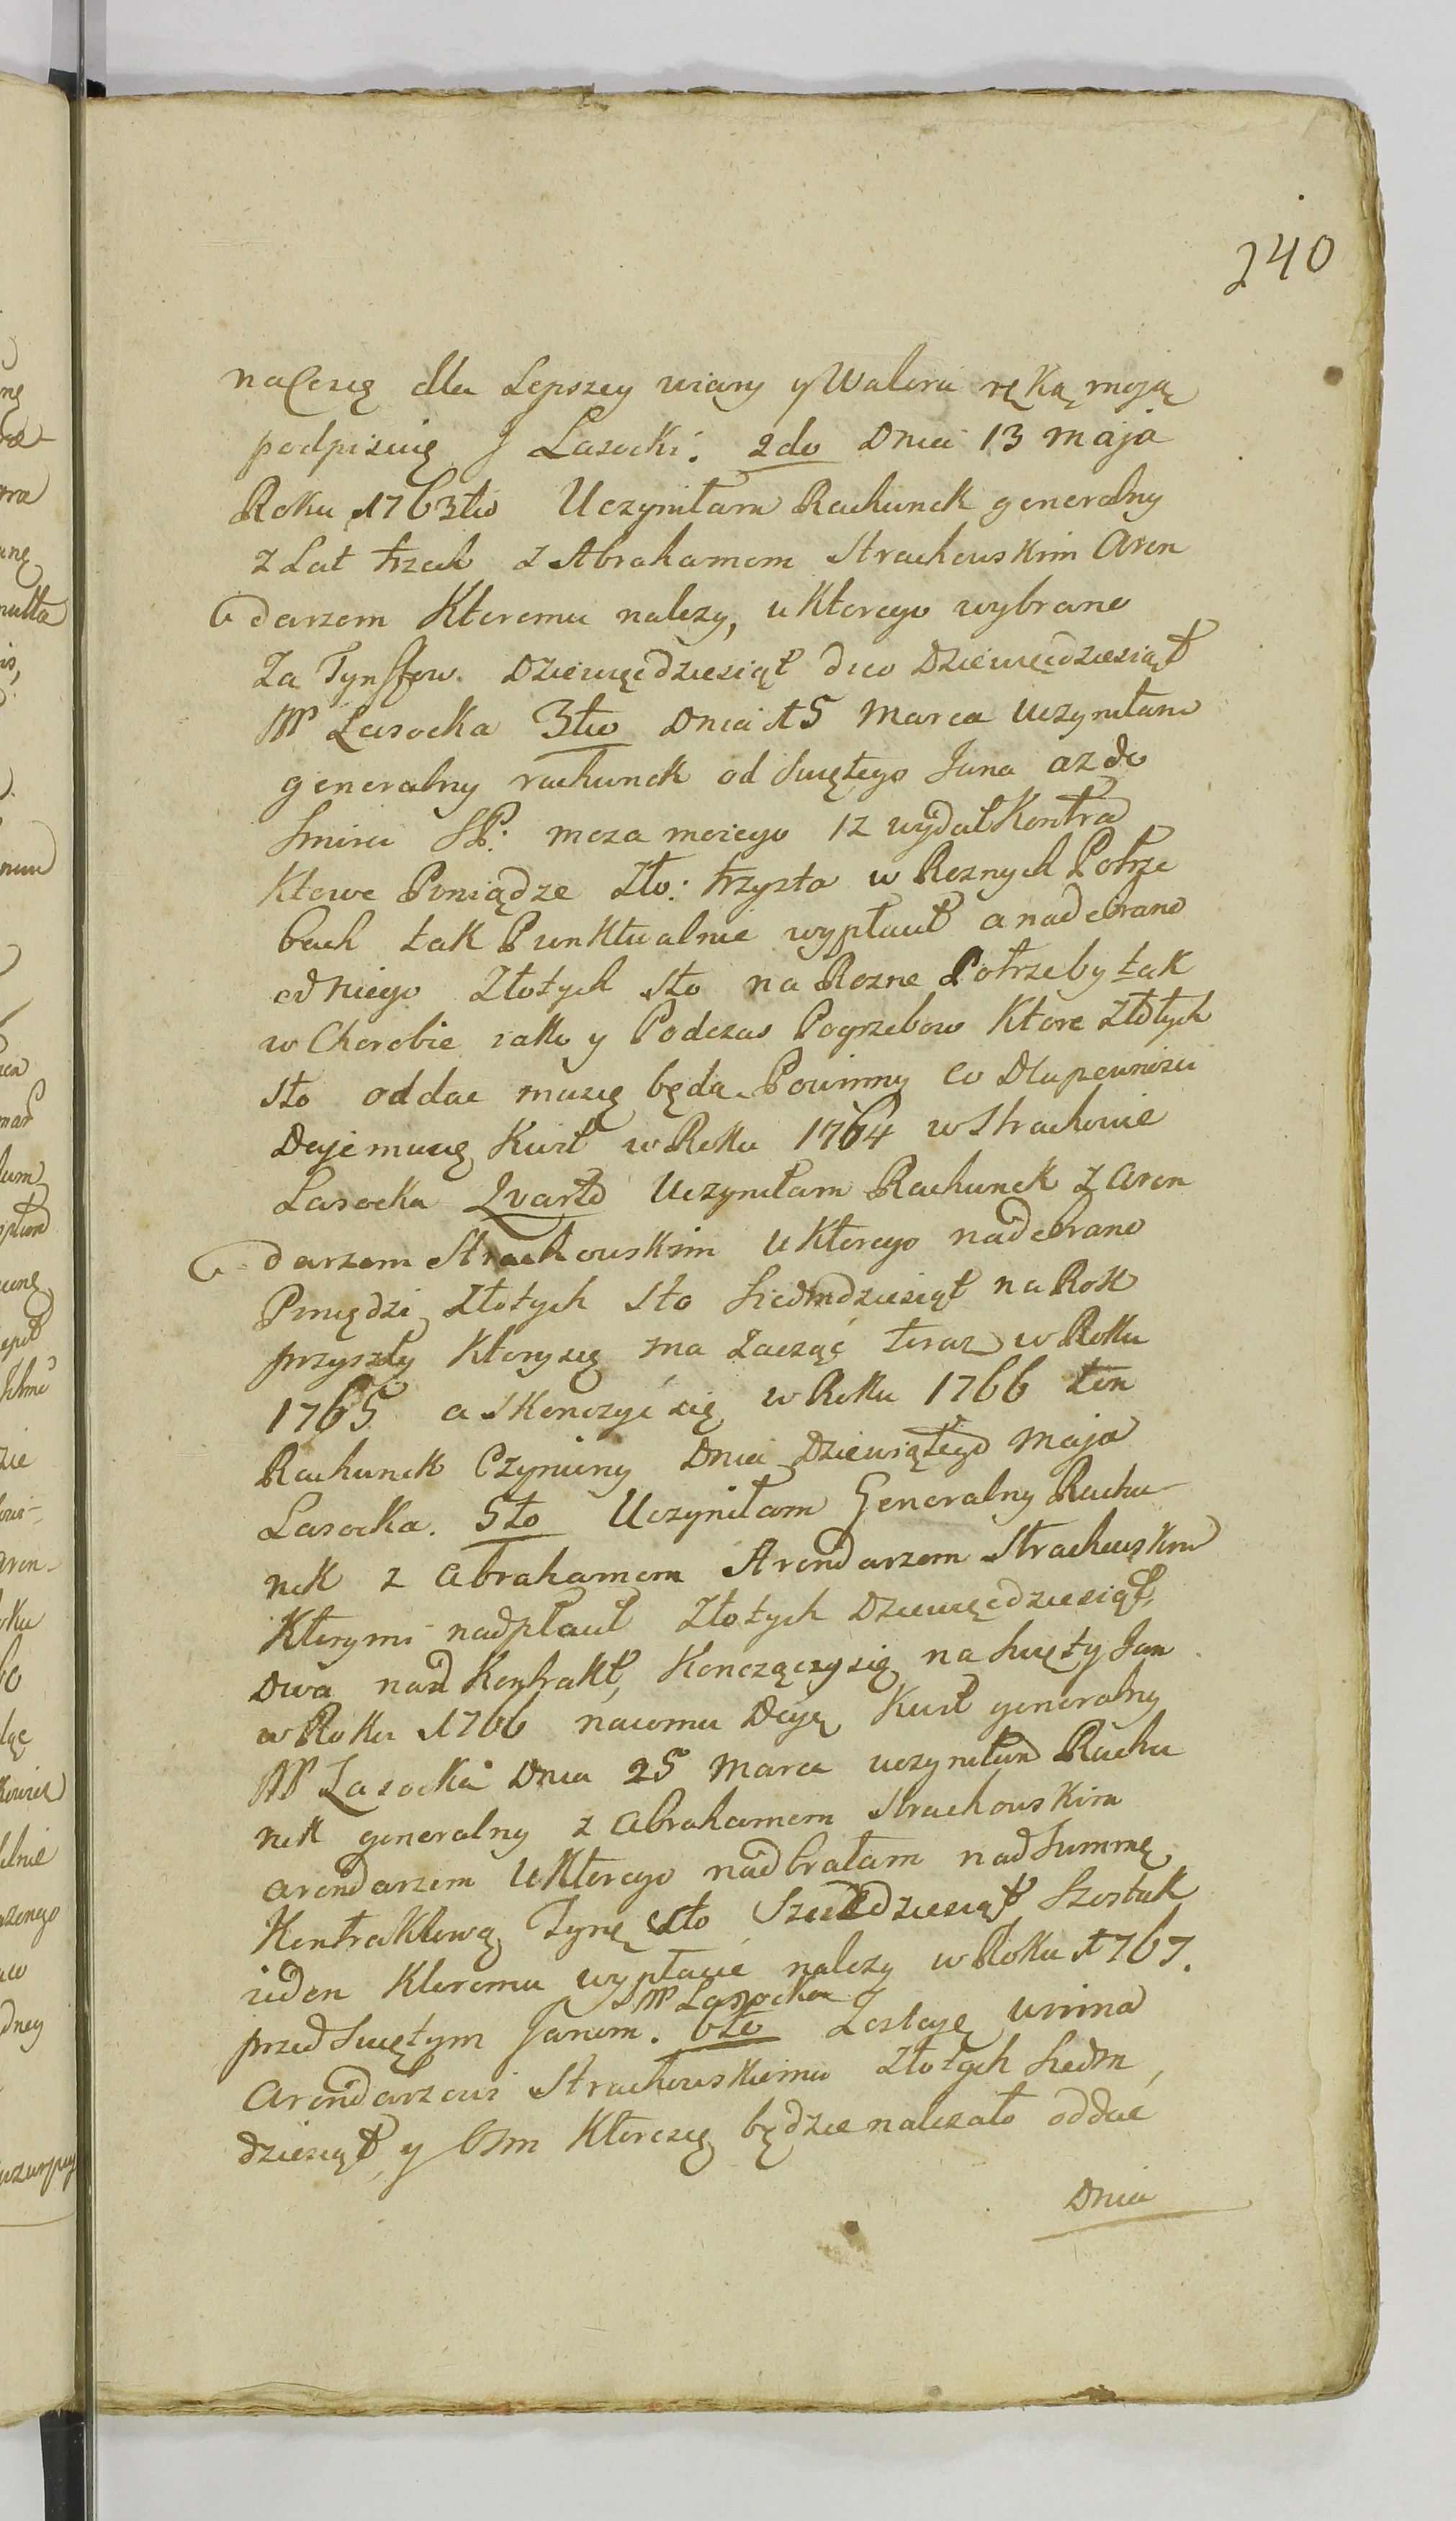 240
na[e]się dla Lepszey wiary y Waloru ręką moją
podpisuię J Lasocki. 2do Dnia 13 maja
Roku 1763tio Uczyniłam Rachunek generalny
z Lat trzech z Abrahamem Strachowskim Aren
darzem Ktoremu nalezy, u Ktorego wybrano
Za Tynffow. Dziewięćdziesiąt dico Dziewięcdziesiąt
MP Lasocka 3tio Dnia 15 Marca Uczyniłam
generalny rachunek od Swiętego Jana az do
Smirci SP: męza moiego iz wydał Kontra
Ktowe Piniądze Zło: trzysta w Roznych Potrze
bach tak Punktualnie wypłacił a nadebrano
od niego Złotych Sto na Rozne Potrzeby tak
w Chorobie iako y Podczas Pogrzebow Ktore Złotych
Sto oddac muszę będą Powinny co Dla pewnosci
Daje mu się Kwit w Roku 1764 w Strachowie
Lasocka Quarto Uczyniłam Rachunek z Aren
darzem Strachowskim u Ktorego nadebrano
Piniędzi Złotych Sto Siedmdziesiąt na Rok
przyszły Ktory się ma Zacząć teraz w Roku
1765 a Skonczyć się w Roku 1766 ten
Rachunek Czyniony Dnia Dziewiątego Maja
Lasocka. 5to Uczyniłam Generalny Rachu-
nek z Abrahamem Arendarzem Strachowskim
Ktory mi nadpłacił Złotych Dziewięcdziesiąt
Dwa nad Kontrakt, Konczączy się na Swięty Jan
w Roku 1766 na co mu Daję Kwit generalny
MP Lasocka Dnia 25 Marca uczyniłam Rachu
nek generalny z Abrahamem Strachowskim
arendarzem U Ktorego nadbrałam nad Summę
Kontraktową Tynf Sto Szescdziesiąt Szostak
ieden Ktoremu wypłacić nalezy w Roku 1767.
MP Lasocka
przed Swiętym Janem. 6to Zostaję winna
Arendarzowi Strachowskiemu Złotych Siedm
dziesiąt y Osm Ktore się będzie nalezało oddac
Dnia